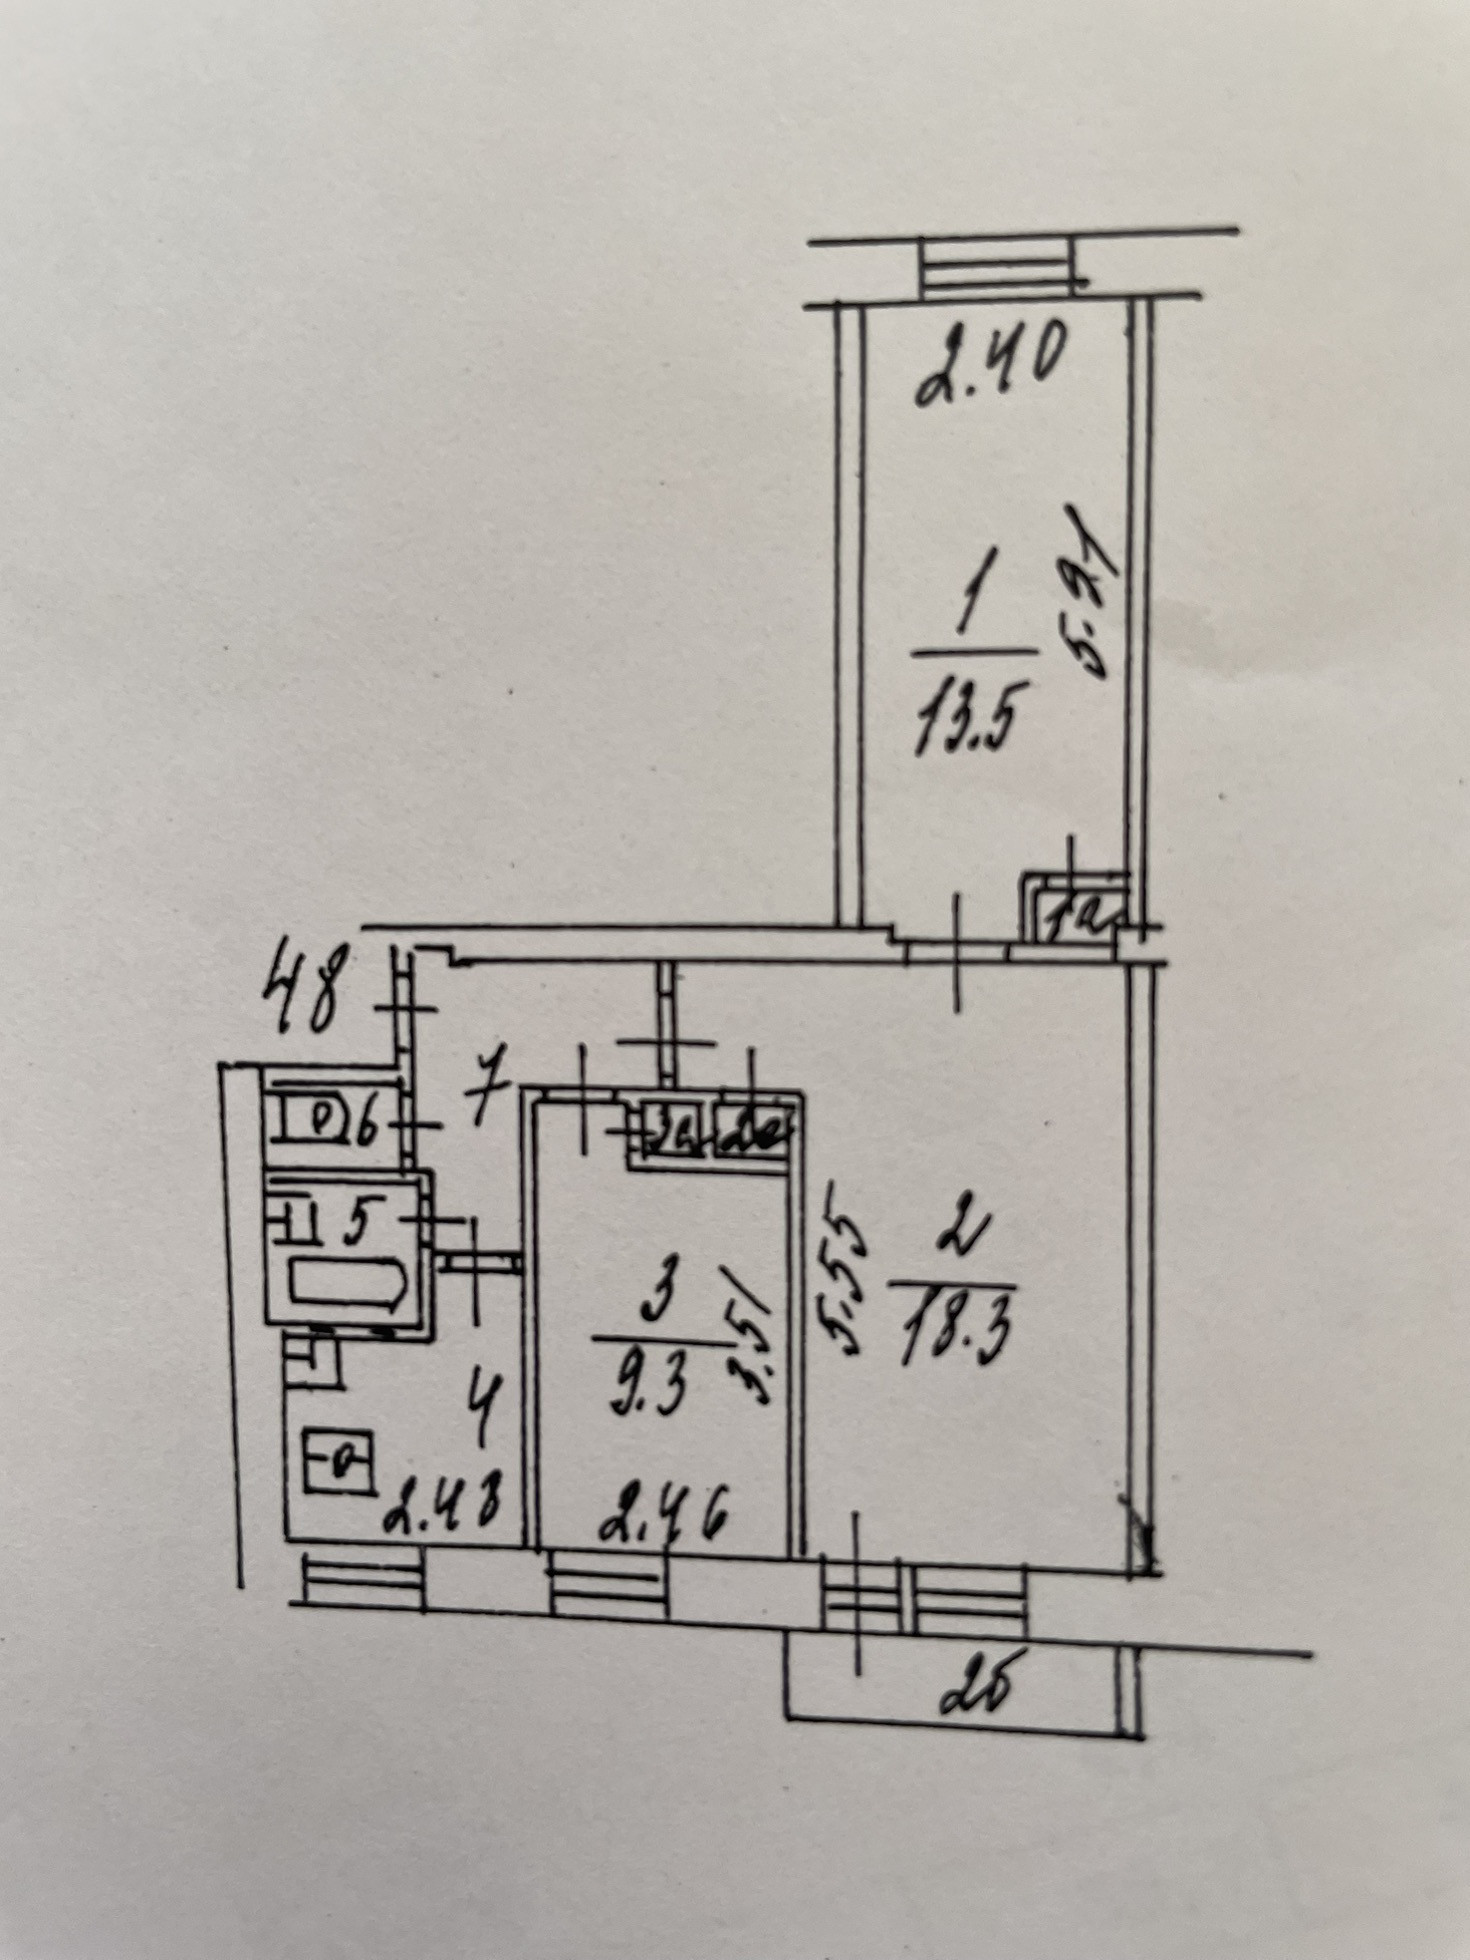 2.40
5.91
1
13.5
1а
48
7
6
3а
2а
5
2
18.3
5.55
3
9.3
3.51
4
2.43
2.46
2б